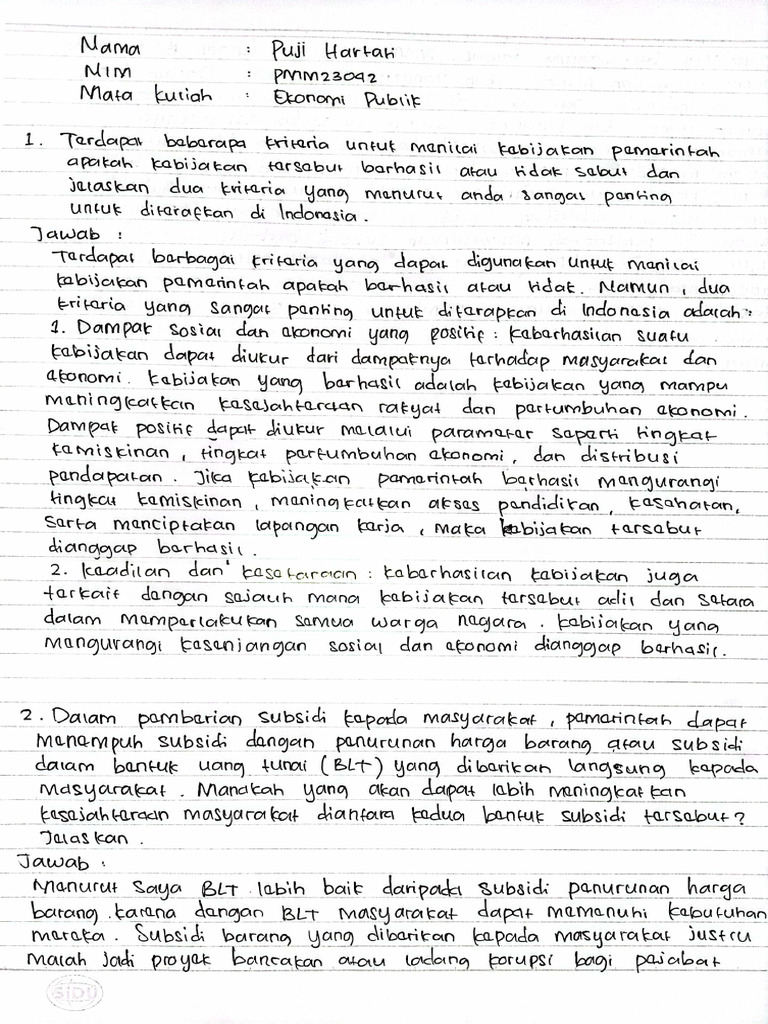 Nama : Puji Hartati
NIM : PMM23042
Mata kuliah : Ekonomi Publik
1. Terdapat beberapa kriteria untuk menilai kebijakan pemerintah
apakah kebijakan tersebut berhasil atau tidak sebut dan
jelaskan dua kriteria yang menurut anda sangat penting
untuk diterapkan di Indonesia.
Jawab :
Terdapat berbagai kriteria yang dapat digunakan untuk menilai
kebijakan pemerintah apakah berhasil atau tidak. Namun, dua
kriteria yang sangat penting untuk diterapkan di Indonesia adalah :
1. Dampak sosial dan ekonomi yang positif : keberhasilan suatu
kebijakan dapat diukur dari dampaknya terhadap masyarakat dan
ekonomi. kebijakan yang berhasil adalah kebijakan yang mampu
meningkatkan kesejahteraan rakyat dan pertumbuhan ekonomi.
Dampak positif dapat diukur melalui parameter seperti tingkat
kemiskinan, tingkat pertumbuhan ekonomi, dan distribusi
pendapatan. Jika kebijakan pemerintah berhasil mengurangi
tingkat kemiskinan, meningkatkan akses pendidikan, kesehatan,
serta menciptakan lapangan kerja, maka kebijakan tersebut
dianggap berhasil.
2. keadilan dan kesetaraan : keberhasilan kebijakan juga
terkait dengan sejauh mana kebijakan tersebut adil dan setara
dalam memperlakukan semua warga negara. kebijakan yang
mengurangi kesenjangan sosial dan ekonomi dianggap berhasil.
2. Dalam pemberian subsidi kepada masyarakat, pemerintah dapat
menempuh subsidi dengan penurunan harga barang atau subsidi
dalam bentuk uang tunai (BLT) yang diberikan langsung kepada
masyarakat. Manakah yang akan dapat lebih meningkatkan
kesejahteraan masyarakat diantara kedua bentuk subsidi tersebut?
Jelaskan.
Jawab :
Menurut saya BLT lebih baik daripada subsidi penurunan harga
barang. karena dengan BLT masyarakat dapat memenuhi kebutuhan
mereka. Subsidi barang yang diberikan kepada masyarakat justru
malah jadi proyek bancakan atau ladang korupsi bagi pejabat
SIDU